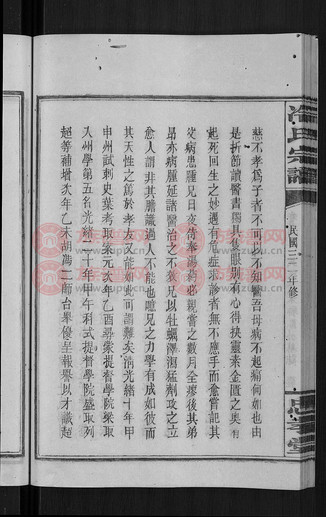 氏宗譜
民國三十二年修
慈不孝爲子者不可以不知醫吾母病不起痛何如也由
是折節讀醫書獨具隻眼別有心得抉靈素金匱之奧有
起死回生之妙遇有危症求診者無不應手而愈嘗記其
患腫兄日夜侍奉湯藥必親嘗之數月全瘳後其弟
昂亦病腫延諸醫治之不效兄以牡蠣澤瀉猛劑攻之立
愈人謂非其膽識過人不能也雖兄之力學有成如彼而
其天性之篤於孝友又能如此可謂難矣前光緒十年甲
申州試刺史葉考取次年乙酉尋蒙提督學院梁取
入州學第五名光緒二十年甲午科試提督學院盛取列
超等補增次年乙未胡海二前台舉優呈報譽以才識超